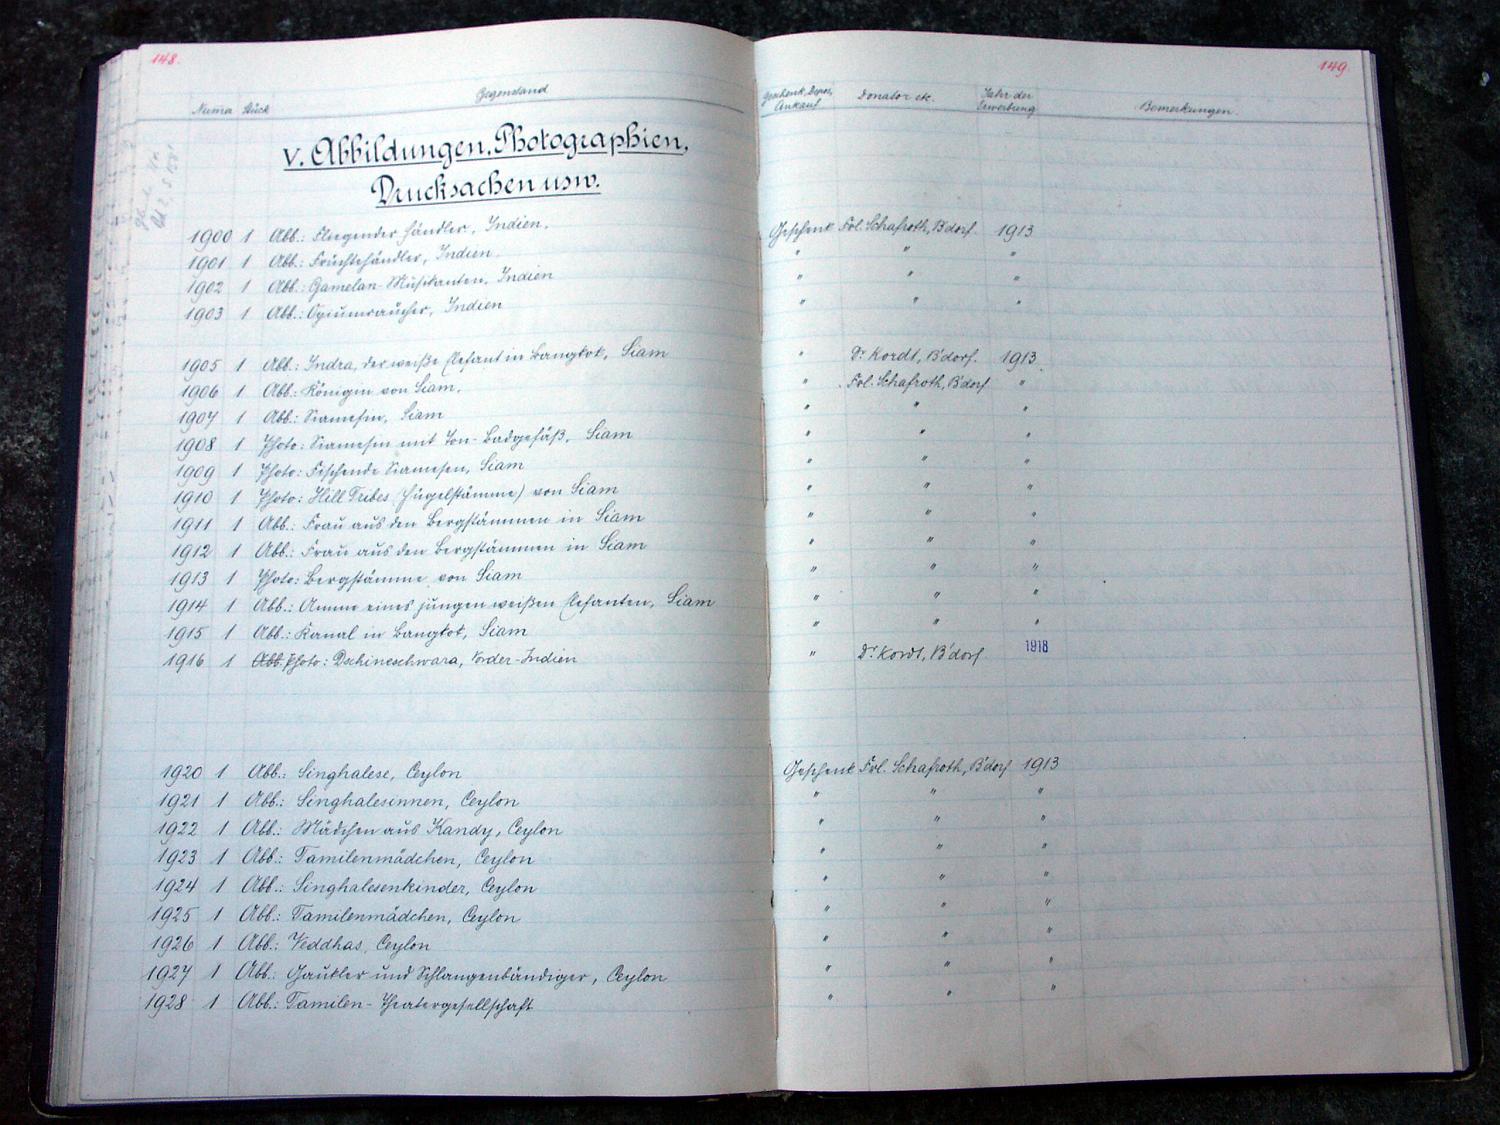 148.
149.
Numm Stück Gegenstand Geschenk, Depos, Ankauf Donator etc. Jahr der Erwerbung Bemerkungen.
V. Abbildungen, Photographien,
Drucksachen usw.
1900 1 Abb.: Fliegender Händler, Indien. Geschenk Frl. Schafroth, B'dorf. 1913
1901 1 Abb.: Früchtehändler, Indien. " " "
1902 1 Abb.: Gamelan-Musikanten, Indien " " "
1903 1 Abb.: Opiumraucher, Indien " " "
1905 1 Abb.: Indra, der weiße Elefant in Bangkok, Siam " Dr. Kordt, B'dorf. 1913.
1906 1 Abb.: Königin von Siam. " Frl. Schafroth, B'dorf "
1907 1 Abb.: Siamesin, Siam " " "
1908 1 Photo: Siamesin mit Ton-Badgefäß, Siam " " "
1909 1 Photo: Fischende Siamesen, Siam " " "
1910 1 Photo: Hill Tribes (Hügelstämme) von Siam " " "
1911 1 Abb.: Frau aus den Bergstämmen in Siam " " "
1912 1 Abb.: Frau aus den Bergstämmen in Siam " " "
1913 1 Photo: Bergstämme von Siam " " "
1914 1 Abb.: Amme eines jungen weißen Elefanten, Siam " " "
1915 1 Abb.: Kanal in Bangkok, Siam " " "
1916 1 Abb. Photo: Dschineschwara, Vorder-Indien " Dr. Kordt, B'dorf 1918
1920 1 Abb.: Singhalese, Ceylon Geschenk Frl. Schafroth, B'dorf 1913
1921 1 Abb.: Singhalesinnen, Ceylon " " "
1922 1 Abb.: Mädchen aus Kandy, Ceylon " " "
1923 1 Abb.: Tamilenmädchen, Ceylon " " "
1924 1 Abb.: Singhalesenkinder, Ceylon " " "
1925 1 Abb.: Tamilenmädchen, Ceylon " " "
1926 1 Abb.: Veddhas, Ceylon " " "
1927 1 Abb.: Gaukler und Schlangenbändiger, Ceylon " " "
1928 1 Abb.: Tamilen-Theatergesellschaft " " "